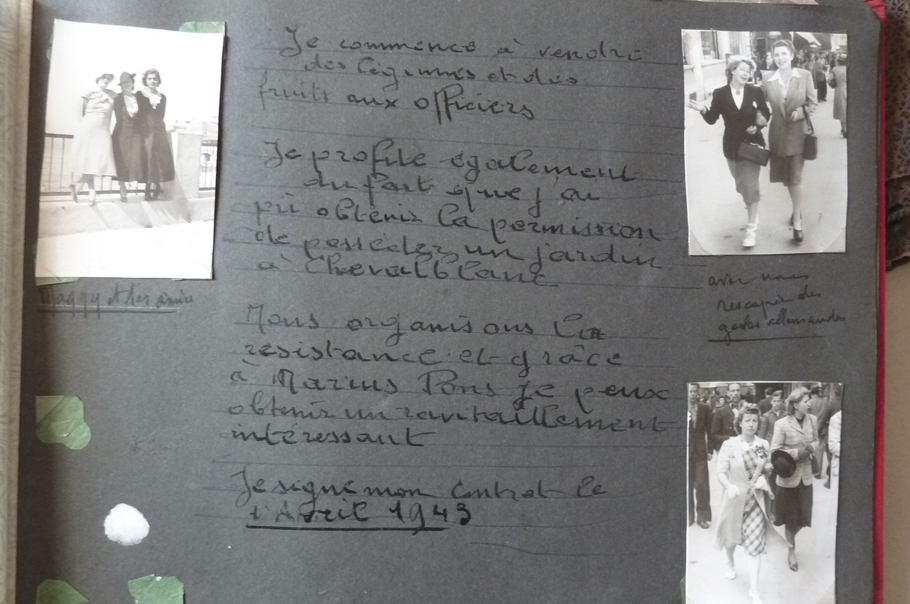 Je commence à vendre
des légumes et des
fruits aux officiers
Je profite également
du fait que j'ai
pu obtenir la permission
de posséder un jardin
à Chevalblanc
Nous organisons la
résistance et grâce
à Marius Pons je peux
obtenir un ravitaillement
intéressant
Je signe mon contrat le
1 Avril 1943
Maggy et ses amies
avec une
rescapée des
geôles allemandes